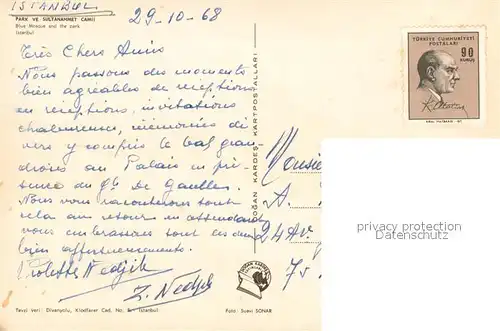 ISTANBUL
29-10-68
PARK VE SULTANAHMET CAMİİ
Blue Mosque and the park
İstanbul
Très Chers Amis
Nous passons des moments
bien agréables de réceptions
en réceptions, invitations
chaleureuses, mémoires di
vers y compris le bal gran
dioses au Palais en pré
sence du Gl De Gaulles.
Nous vous raconterons tout
cela au retour en attendant
vous embrassons tout es deux
bien affectueusement.
Violette Nedjib
Z. Nedjib
DOĞAN KARDEŞ KARTPOSTALLARI
TÜRKİYE CUMHURİYETİ
POSTALARI
90
KURUŞ
K. Atatürk
Monsieu
A.
24 Av
75
privacy protection
Tevzi yeri: Divanyolu, Klodfarer Cad. No. İstanbul
Foto: Suavi SONAR